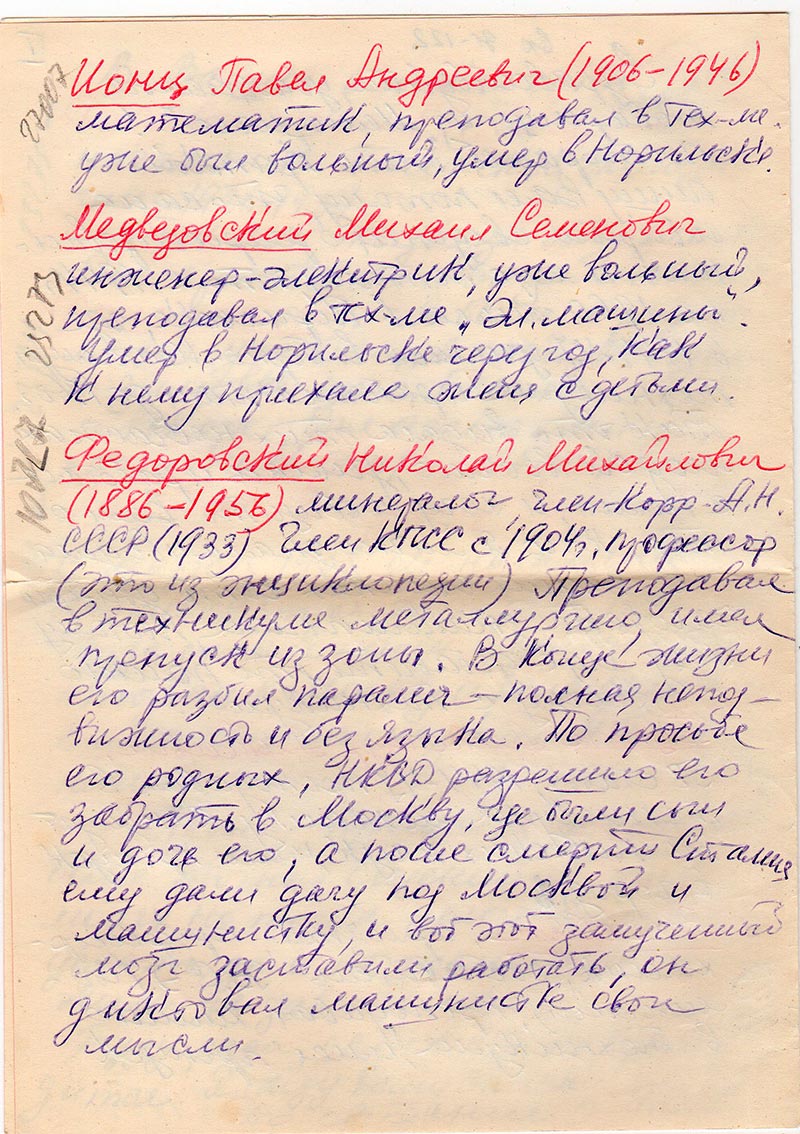 Ионц Павел Андреевич (1906-1946)
математик, преподавал в тех-ме.
уже был вольный, умер в Норильске.
Медведовский Михаил Семенович
инженер-электрик, уже вольный,
преподавал в тех-ме „Эл. машины".
Умер в Норильске через год, как
к нему приехала жена с детьми.
Федоровский Николай Михайлович
(1886-1956) минералог, член-корр. А.Н.
СССР (1933) Член КПСС с 1904г. профессор
(это из энциклопедии) Преподавал
в техникуме металлургию, имел
пропуск из зоны. В конце жизни
его разбил паралич - полная непод-
вижность и без языка. По просьбе
его родных, НКВД разрешило его
забрать в Москву, где были сын
и дочь его, а после смерти Сталина
ему дали дачу под Москвой и
машинистку, и вот этот замученный
мозг заставили работать, он
диктовал машинистке свои
мысли.
27007
25273